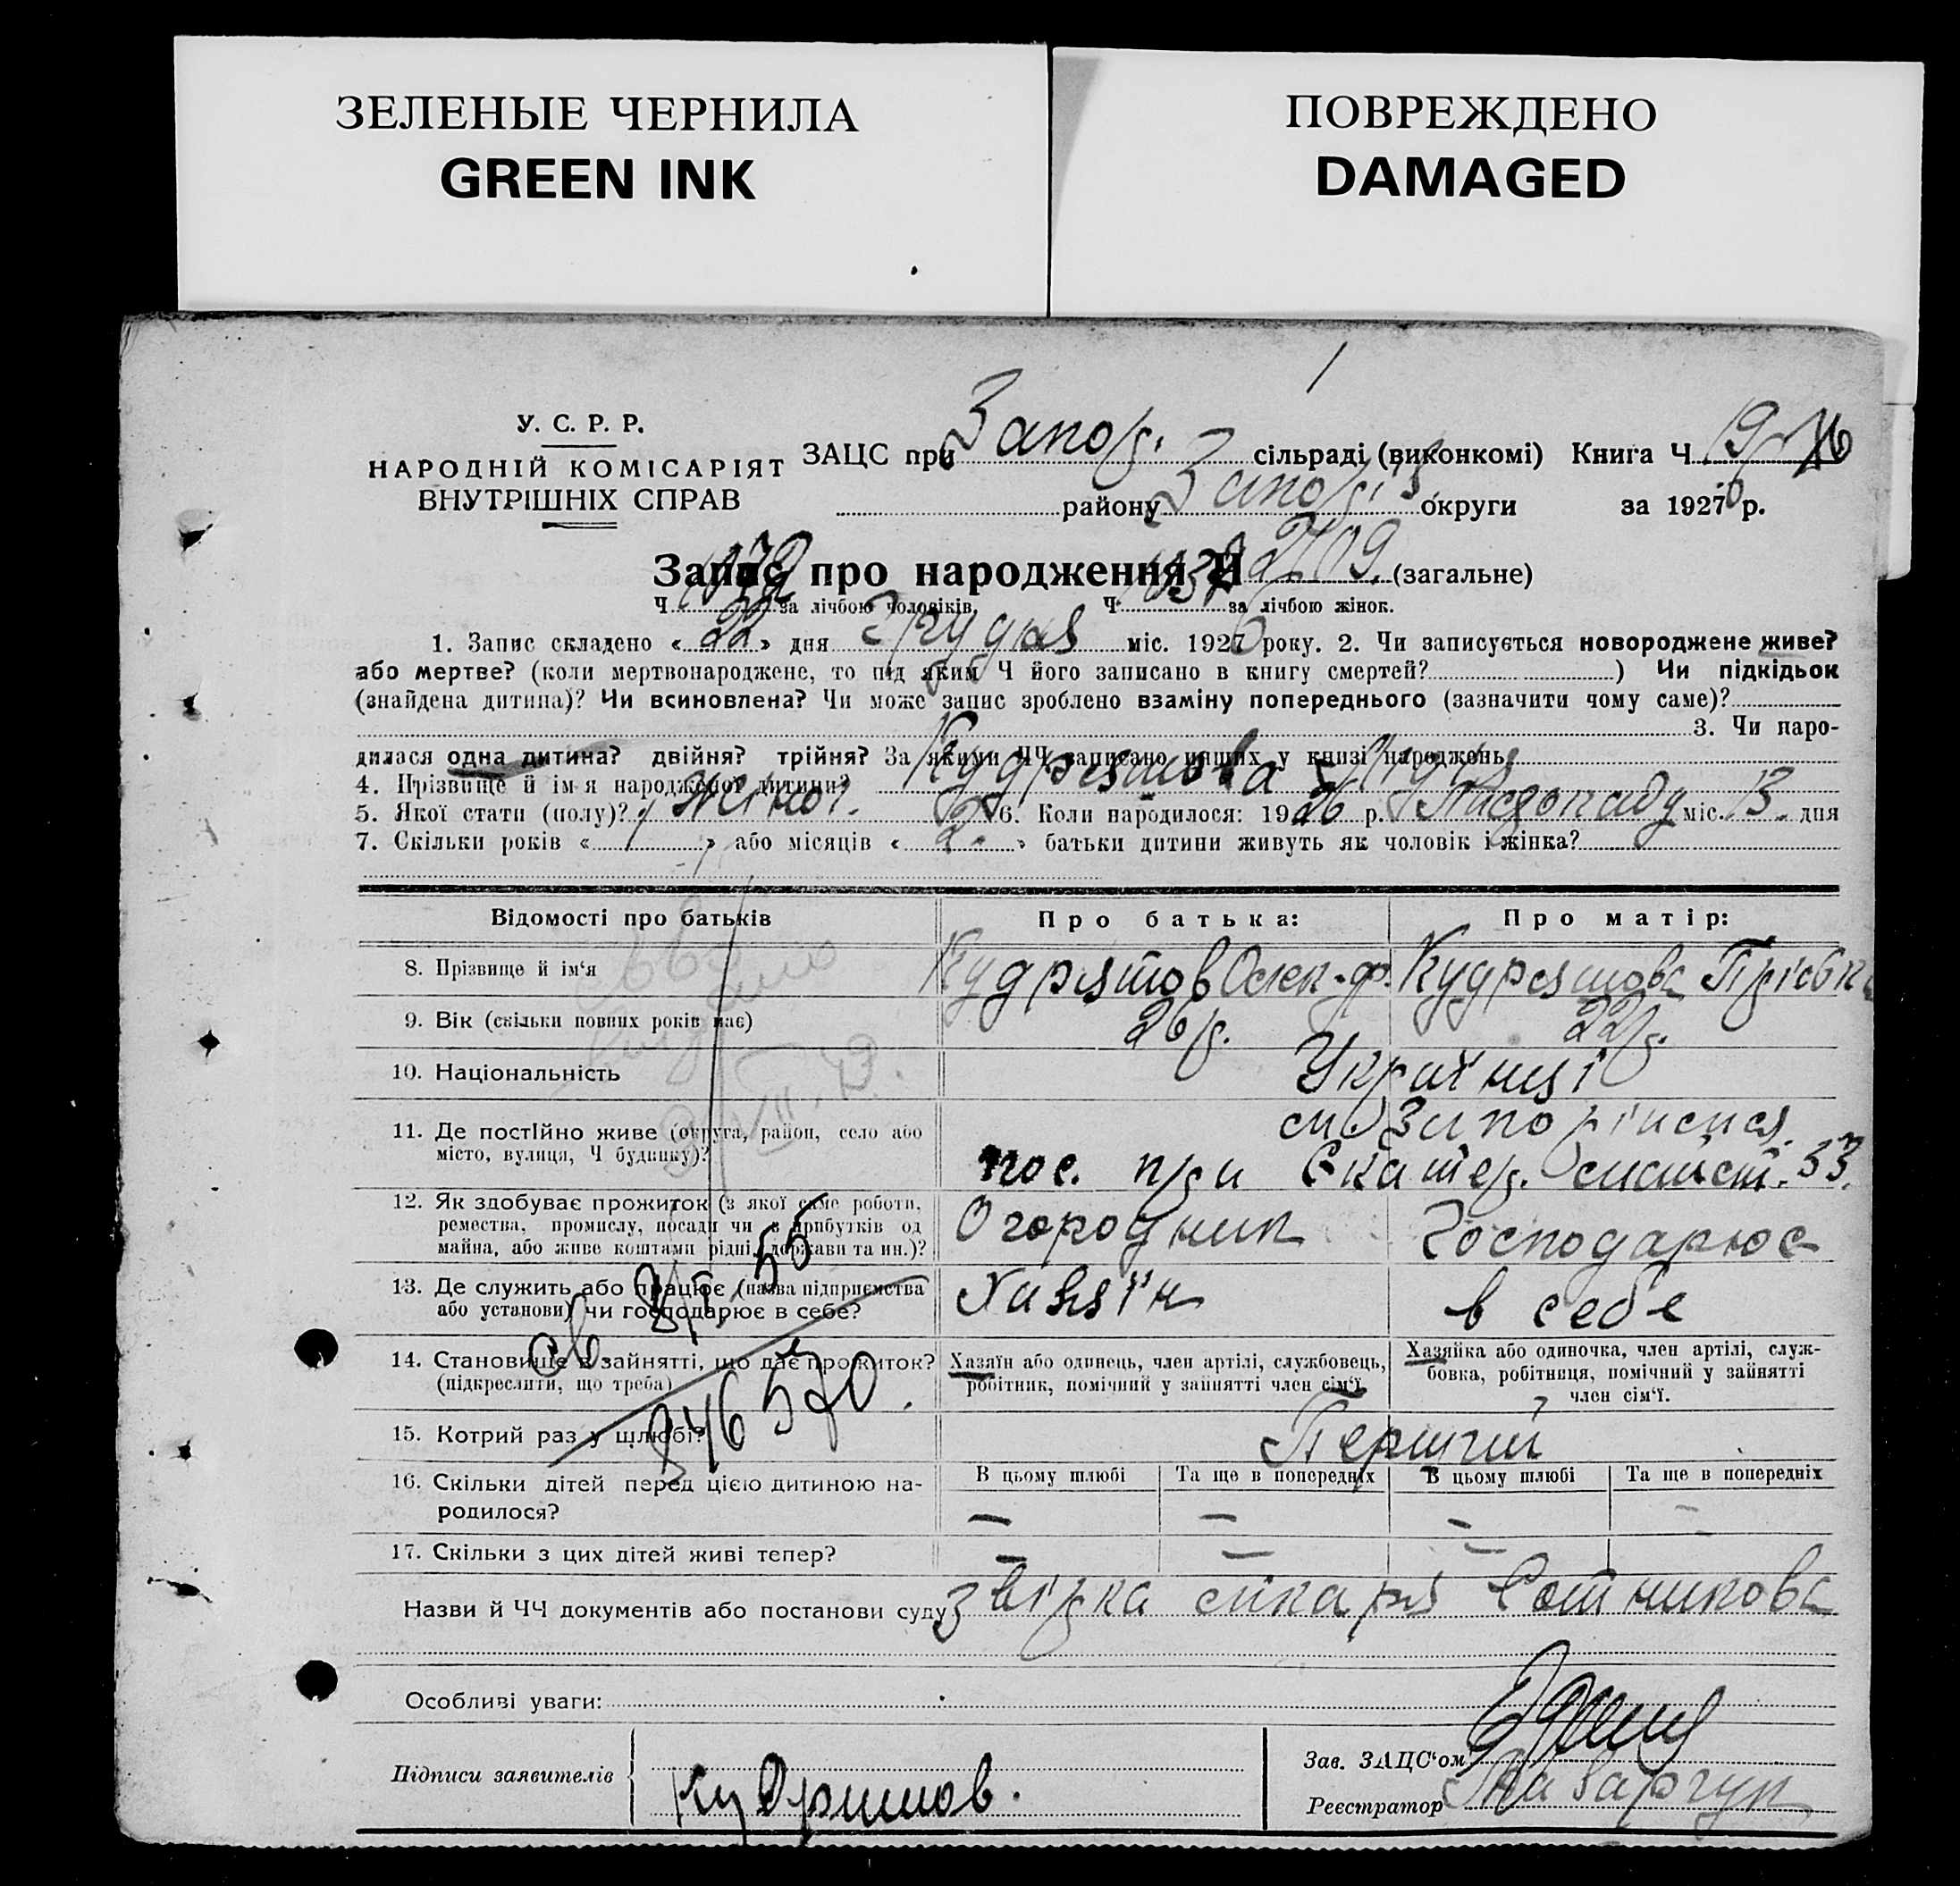 ЗЕЛЕНЫЕ ЧЕРНИЛА
GREEN INK
ПОВРЕЖДЕНО
DAMAGED
У. С. Р. Р.
НАРОДНІЙ КОМІСАРІЯТ
ВНУТРІШНІХ СПРАВ
ЗАЦС при Запор. сільраді (виконкомі) Книга Ч
району Запор. округи за 1926 р.
Запис про народження Ч 2109. (загальне)
Ч за лічбою чоловіків. Ч за лічбою жінок.
1. Запис складено «22» дня Грудня міс. 1926 року. 2. Чи записується новороджене живе?
або мертве? (коли мертвонароджене, то під яким Ч його записано в книгу смертей? ) Чи підкідьок
(знайдена дитина)? Чи всиновлена? Чи може запис зроблено взаміну попереднього (зазначити чому саме)?
3. Чи наро-
дилася одна дитина? двійня? трійня? За якими ЧЧ записано инших у книзі народжень
4. Прізвище й ім'я народженої дитини? Кудряшова
5. Якої стати (полу)? жіноч. 6. Коли народилося: 1926 р. Листопаду міс. 13. дня
7. Скільки років « 1 » або місяців « 2. » батьки дитини живуть як чоловік і жінка?
Відомості про батьків
Про батька:
Про матір:
8. Прізвище й ім'я Кудряшов Олек-др. Кудряшова
9. Вік (скільки повних років має) 26 р. 22 р.
10. Національність Українці
11. Де постійно живе (округа, район, село або м. Запоріжжя
місто, вулиця, Ч будинку)? пос. при Єкатер. 53.
12. Як здобуває прожиток (з якої саме роботи, Огородник Господарює
ремества, промислу, посади чи з прибутків од
майна, або живе коштами рідні, держави та ин.)?
13. Де служить або працює (назва підприємства Хазяїн в себе
або установи) чи господарює в себе?
14. Становище в зайнятті, що дає прожиток? Хазяїн або одинець, член артілі, службовець, Хазяйка або одиночка, член артілі, служ-
(підкреслити, що треба) робітник, помічний у зайнятті член сім'ї. бовка, робітниця, помічний у зайнятті
член сім'ї.
15. Котрий раз у шлюбі? Перший
16. Скільки дітей перед цією дитиною на- В цьому шлюбі Та ще в попередніх В цьому шлюбі Та ще в попередніх
родилося? – – – –
17. Скільки з цих дітей живі тепер? – – –
Назви й ЧЧ документів або постанови суду Звірка лікаря Сотникова
Особливі уваги:
Підписи заявителів Кудряшов.
Зав. ЗАЦС'ом
Реєстратор